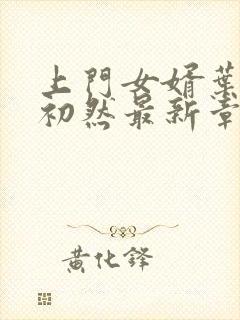 上門女婿葉
初然最新章
黃化鋒